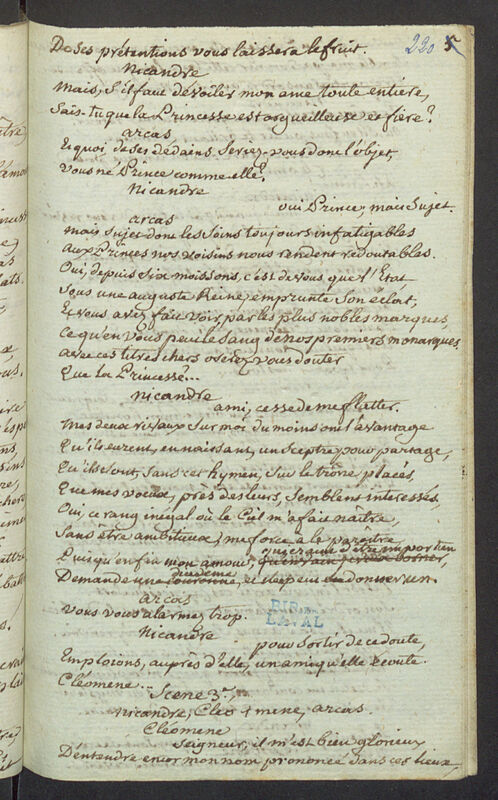 220 5
De ses prétentions vous laissera le fruit.
Nicandre
Mais, S'il faut dévoiler mon ame toute entiére,
Sais-tu que la Princesse est orgueilleuse et fière?
arcas
Et quoi de ses dedains Seriez vous donc l'objet,
vous né Prince comme elle?
Nicandre
oui Prince, mais Sujet.
arcas
mais sujet dont les Soins toujours infatigables
aux Princes nos voisins nous rendent redoutables.
Oui, depuis Six moissons, c'est de vous que l'Etat
Sous une auguste Reine, emprunte Son éclat,
Et vous avez fait voir par les plus nobles marques,
ce qu'en vous peut le Sang de nos premiers monarques.
avec ces titres chers osez vous douter
Que la Princesse...
Nicandre
ami, cesse de me flatter.
Mes deux rivaux Sur moi du moins ont l'avantage
Qu'ils eurent, en naissant, un Sceptre pour partage,
Qu'ils Sont, Sans cet hymen, Sur le trône placés,
Que mes voeux, près des leurs, Semblent interessés.
Oui, ce rang inégal où le Ciel m'a fait naître,
Sans être ambitieux, me force à le paroître
Puisqu'enfin mon amour,
Demande une couronne, et
diadême
arcas
vous vous alarmez trop.
Nicandre
pour Sortir de ce doute,
Emploions, auprès d'elle, un ami qu'elle écoute.
Cléomene...
Scene 3e,
Nicandre, Cléomene, arcas.
Cléomene
Seigneur, il m'est bien glorieux
D'entendre encor mon nom prononcé dans ces lieux,